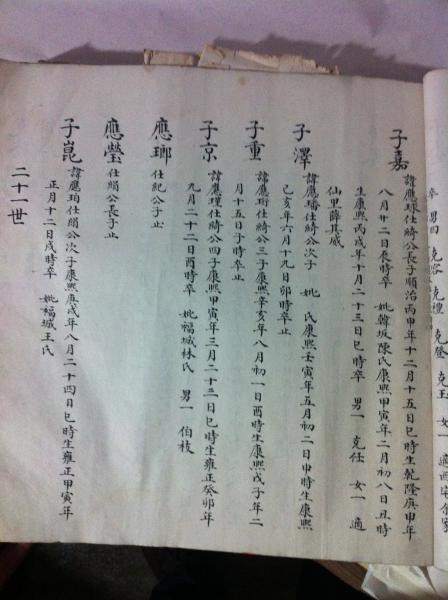 卒 男四 克容 克禋 克登 克玉 女一 適西
子嘉 諱應球仕綺公長子順治丙申年十二月十五日巳時生乾隆庚申年
八月廿二日辰時卒 妣韓坂陳氏康熙甲寅年二月初八日丑時
生康熙丙戌年十月二十三日巳時卒 男一 克任 女一 適
仙里薛其威
子澤 諱應璠仕綺公次子 妣 氏康熙壬寅年五月初二日申時生康熙
己亥年六月十九日卯時卒止
子重 諱應珩仕綺公三子康熙辛亥年八月初一日酉時生康熙戊子年二
月十五日子時卒止
子京 諱應瑾仕綺公四子康熙甲寅年三月二十三日巳時生雍正癸卯年
九月二十二日酉時卒 妣福城林氏 男一 伯枝
應瑯 仕紀公子止
應瑩 仕絹公長子止
子崑 諱應珀仕絹公次子康熙庚戌年八月二十四日巳時生雍正甲寅年
正月十二日戌時卒 妣福城王氏
二十一世